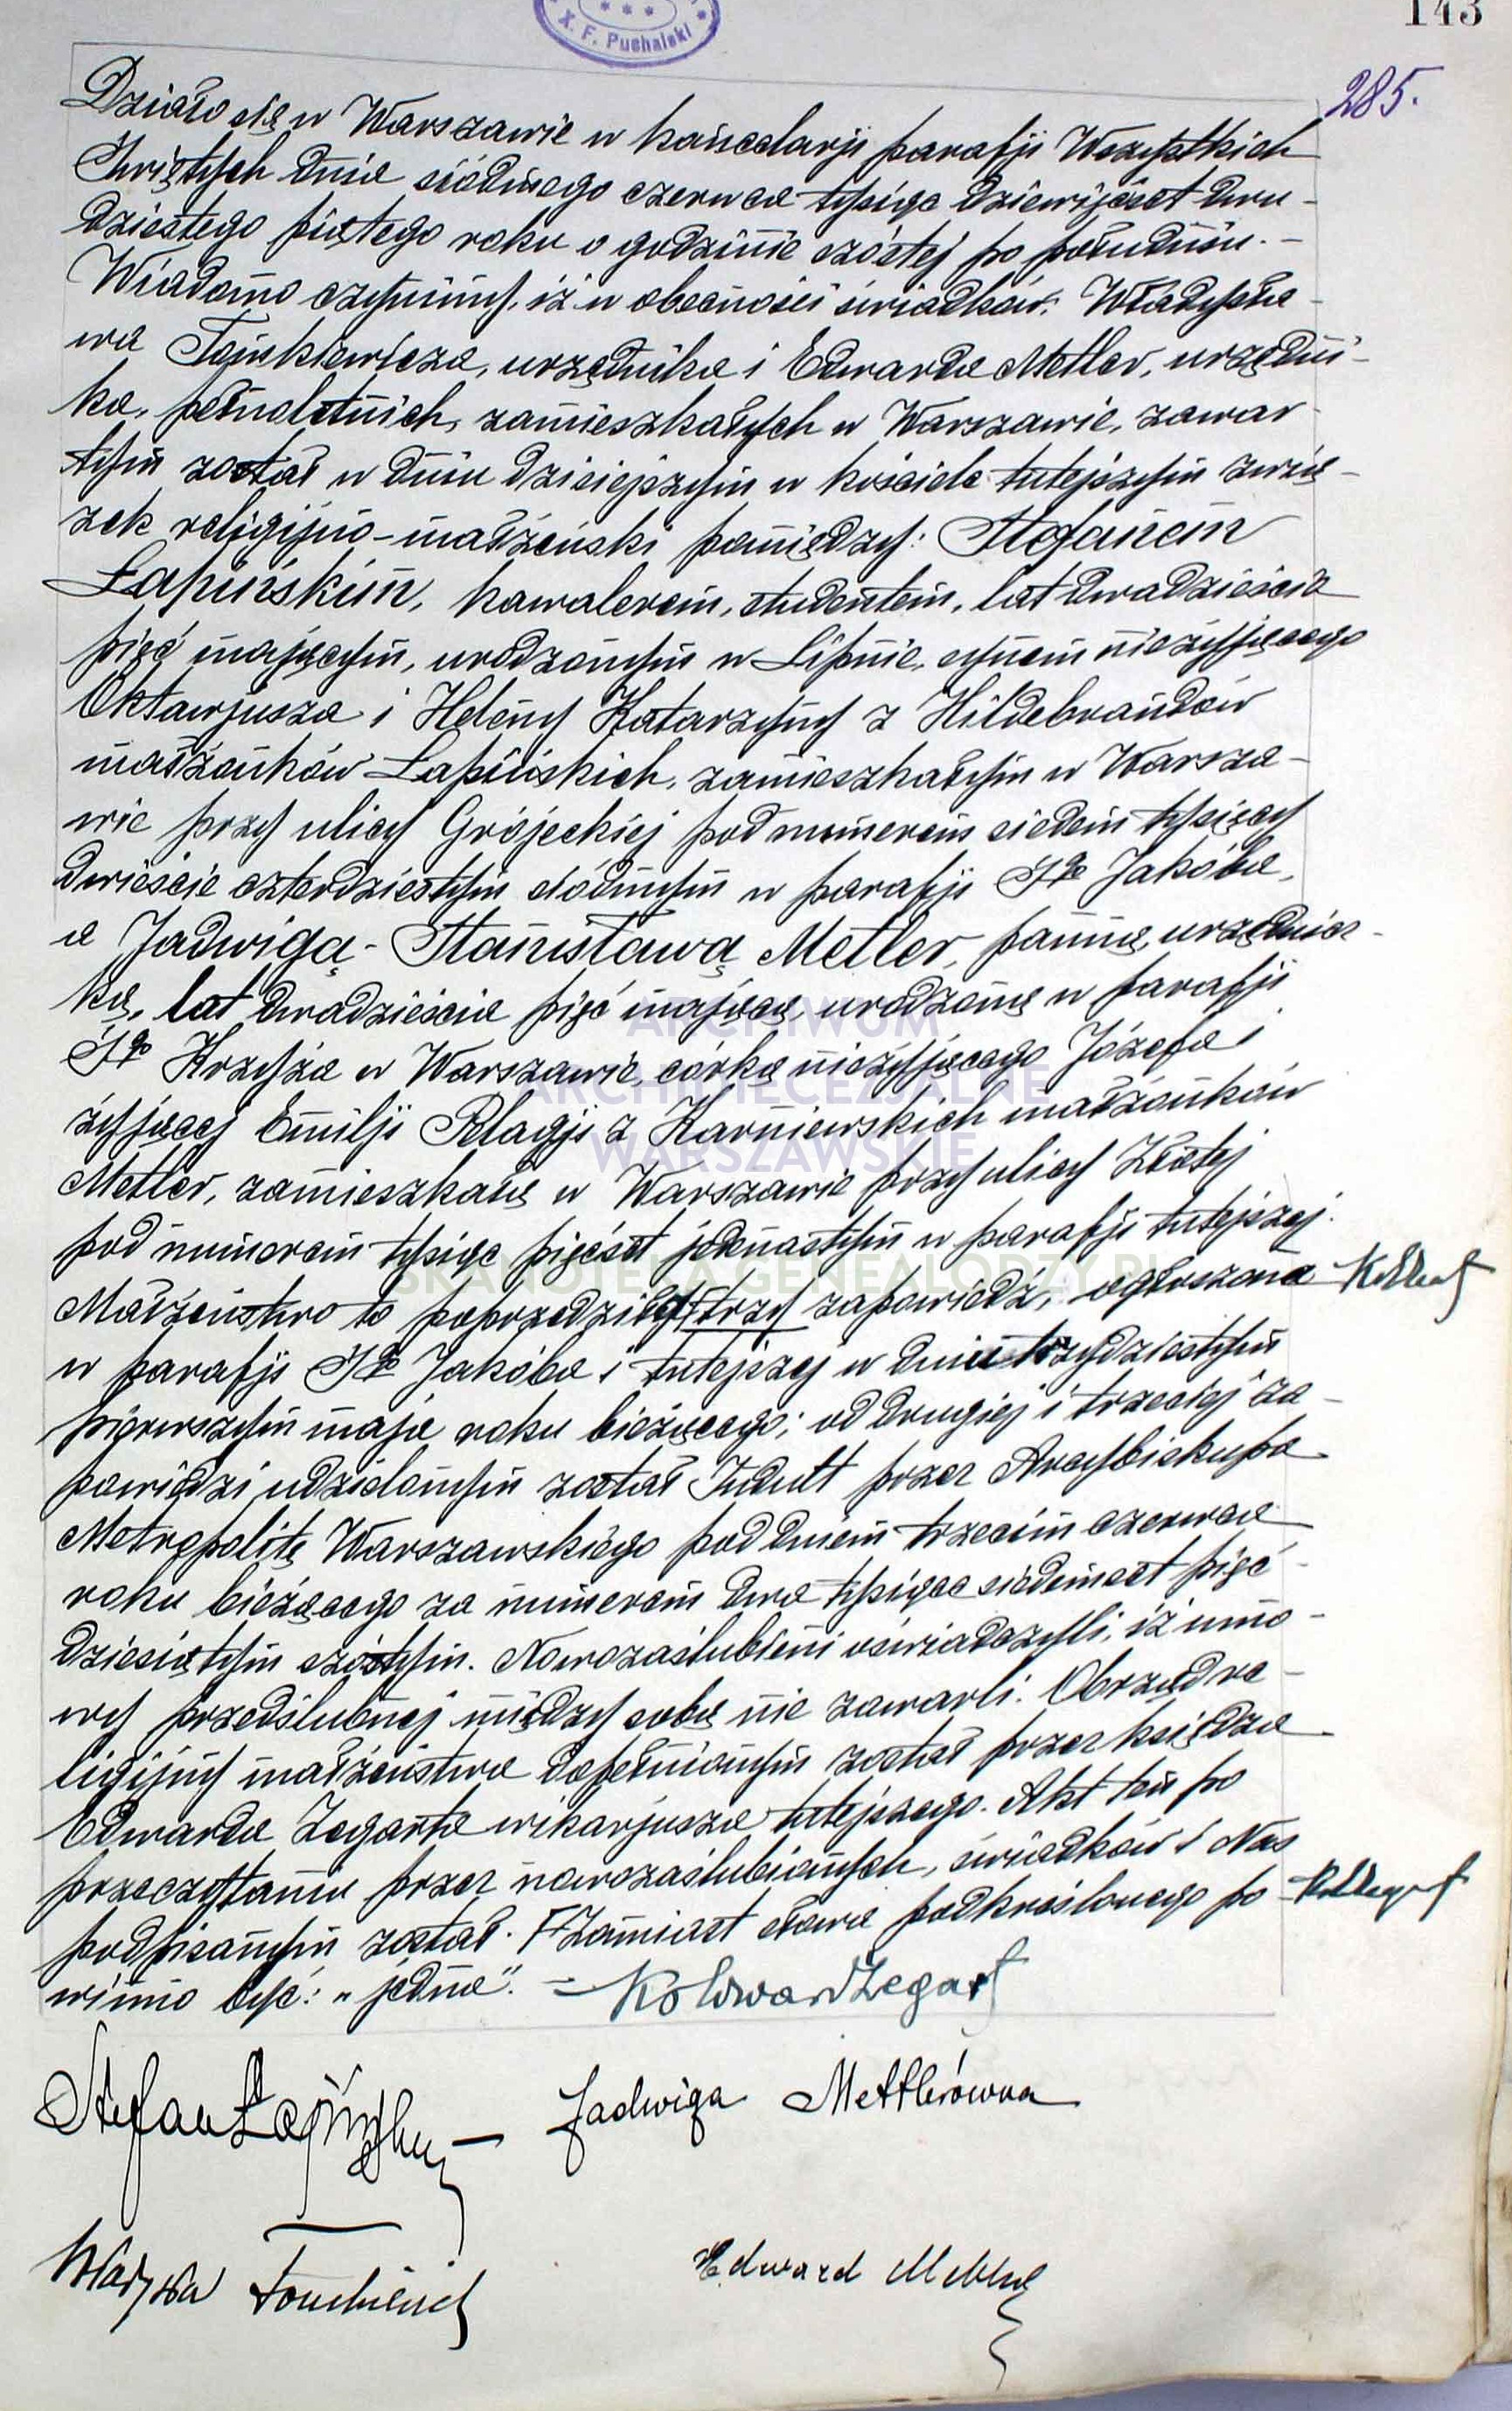 143
X. F. Puchalski
285.
Działo się w Warszawie w kancelarji parafji Wszystkich
Świętych dnia siódmego czerwca tysiąc dziewięćset dwu-
dziestego piątego roku o godzinie szóstej po południu. -
Wiadomo czynimy, iż w obecności świadków: Władysła-
wa Tomkiewicza, urzędnika i Edwarda Metler, urzędni-
ka, pełnoletnich, zamieszkałych w Warszawie, zawar-
tym został w dniu dzisiejszym w kościele tutejszym zwią-
zek religijno-małżeński pomiędzy: Stefanem
Łapińskim, kawalerem, studentem, lat dwadzieścia
pięć mającym, urodzonym w Lipnie, synem nieżyjącego
Oktawjusza i Heleny Katarzyny z Hildebrandów
małżonków Łapińskich, zamieszkałym w Warsza-
wie przy ulicy Grójeckiej pod numerem siedem tysięcy
dwieście czterdziestym siódmym w parafji Sgo Jakóba,
a Jadwigą-Stanisławą Metler, panną, urzędnicz-
ką, lat dwadzieścia pięć mającą, urodzoną w parafji
Sgo Krzyża w Warszawie, córką nieżyjącego Józefa i
żyjącej Emilji Pelagji z Karniewskich małżonków
Metler, zamieszkałą w Warszawie przy ulicy Złotej
pod numerem tysiąc pięćset jedenastym w parafji tutejszej.
Małżeństwo to poprzedziły trzy zapowiedź, ogłoszona
w parafji Sgo Jakóba i tutejszej w dniu trzydziestym
pierwszym maja roku bieżącego; od drugiej i trzeciej za-
powiedzi udzielonym został Indult przez Arcybiskupa
Metropolitę Warszawskiego pod dniem trzecim czerwca
roku bieżącego za numerem dwa tysiące siedemset pięć-
dziesiątym szóstym. Nowozaślubieni oświadczyli, iż umo-
wy przedślubnej między sobą nie zawarli. Obrzęd re-
ligijny małżeństwa dopełnionym został przez księdza
Edwarda Zegarta wikarjusza tutejszego. Akt ten po
przeczytaniu przez nowozaślubionych, świadków i Nas
podpisanym został. Zamiast słowa podkreślonego po-
winno być: „jedna". =
Stefan Łapiński - Jadwiga Mettlerówna
Edward
ARCHIWUM
ARCHIDIECEZJALNE
WARSZAWSKIE
SKANOTEKA.GENEALODZY.PL